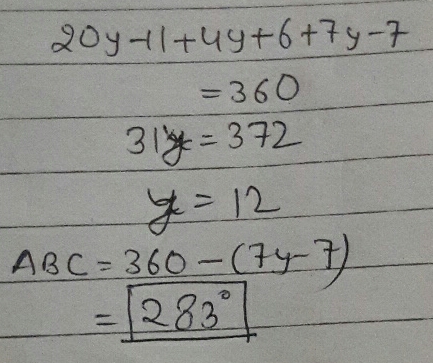 20y-11+4y+6+7y-7
=360
31y=372
y=12
ABC=360-(7y-7)
=283°